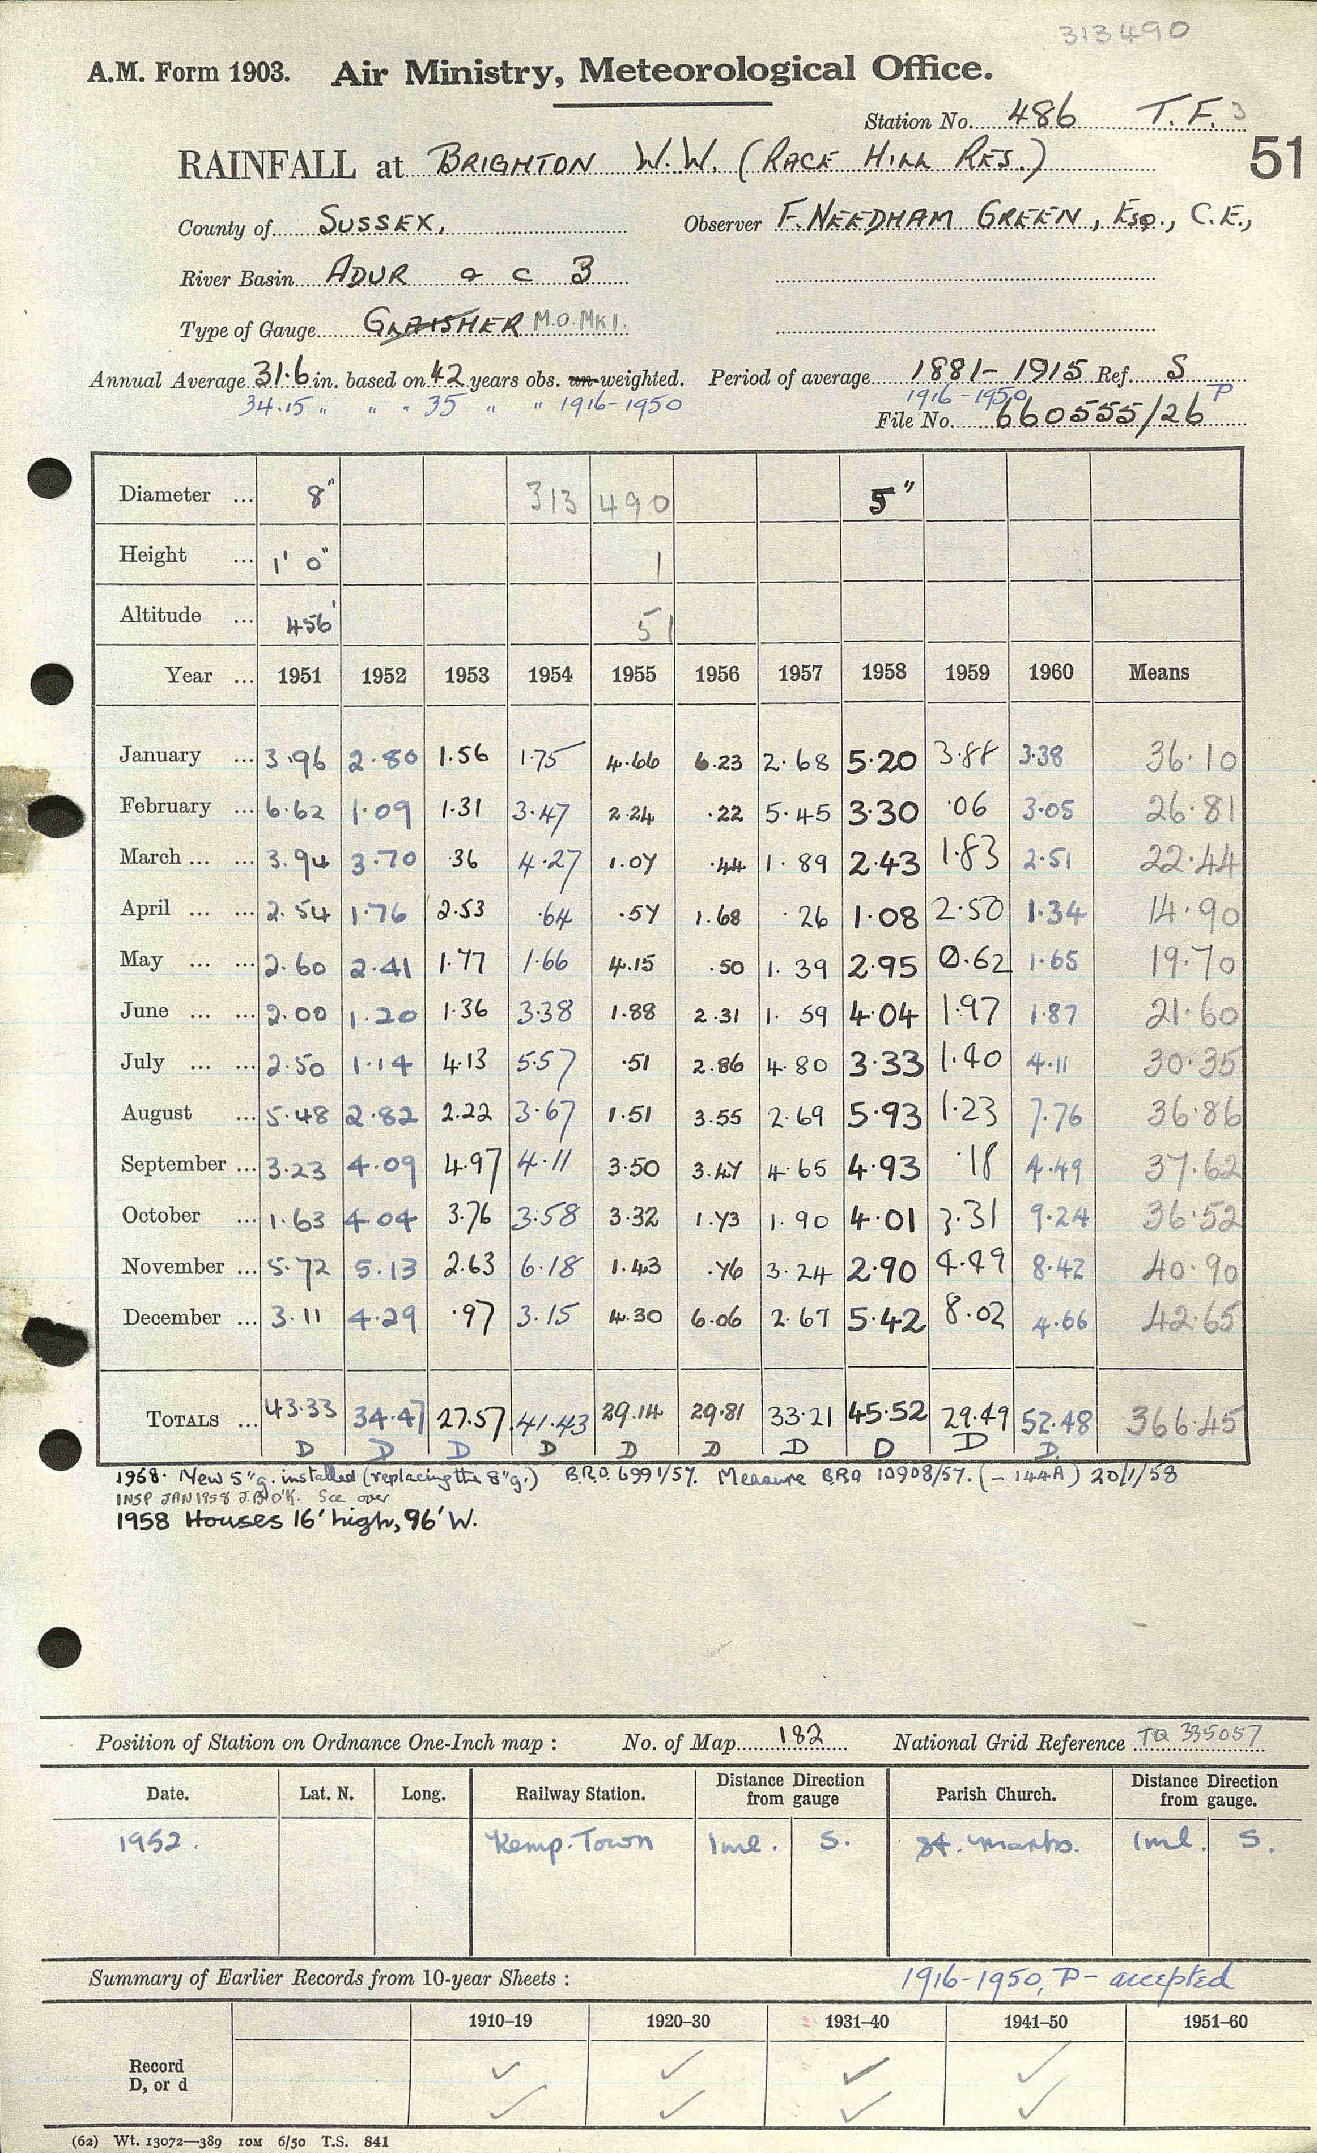 313490
A.M. Form 1903. Air Ministry, Meteorological Office.
Station No. 486 T.F. 3
51
RAINFALL at BRIGHTON W.W. (RACE HILL RES.)
County of SUSSEX, Observer F. NEEDHAM GREEN, Esq., C.E.,
River Basin ADUR a c 3
Type of Gauge GLAISHER M.O. MK 1.
Annual Average 31.6 in. based on 42 years obs. un-weighted. Period of average 1881-1915 Ref. S
34.15 " " " 35 " " 1916-1950 1916-1950 P
File No. 660555/26
Diameter ... 8" 313 490 5"
Height ... 1' 0" 1
Altitude ... 456' 51
Year ... 1951 1952 1953 1954 1955 1956 1957 1958 1959 1960 Means
January ... 3.96 2.80 1.56 1.75 4.66 6.23 2.68 5.20 3.88 3.38 36.10
February ... 6.62 1.09 1.31 3.47 2.24 .22 5.45 3.30 .06 3.05 26.81
March ... ... 3.94 3.70 .36 4.27 1.07 .44 1.89 2.43 1.83 2.51 22.44
April ... ... 2.54 1.76 2.53 .64 .57 1.68 .26 1.08 2.50 1.34 14.90
May ... ... 2.60 2.41 1.77 1.66 4.15 .50 1.39 2.95 0.62 1.65 19.70
June ... ... 2.00 1.20 1.36 3.38 1.88 2.31 1.59 4.04 1.97 1.87 21.60
July ... ... 2.50 1.14 4.13 5.57 .51 2.86 4.80 3.33 1.40 4.11 30.35
August ... 5.48 2.82 2.22 3.67 1.51 3.55 2.69 5.93 1.23 7.76 36.86
September ... 3.23 4.09 4.97 4.11 3.50 3.47 4.65 4.93 .18 4.49 37.62
October ... 1.63 4.04 3.76 3.58 3.32 1.73 1.90 4.01 3.31 9.24 36.52
November ... 5.72 5.13 2.63 6.18 1.43 .76 3.24 2.90 4.49 8.42 40.90
December ... 3.11 4.29 .97 3.15 4.30 6.06 2.67 5.42 8.02 4.66 42.65
TOTALS ... 43.33 34.47 27.57 41.43 29.14 29.81 33.21 45.52 29.49 52.48 366.45
D D D D D D D D D D.
1958. New 5"g. installed (replacing the 8"g.) B.R.O. 6991/57. Measure BRO 10908/57. (- 144A) 20/1/58
INSP JAN 1958 J.B. O'K. See over
1958 Houses 16' high, 96' W.
Position of Station on Ordnance One-Inch map : No. of Map 182 National Grid Reference TQ 335057
Date. Lat. N. Long. Railway Station. Distance Direction from gauge Parish Church. Distance Direction from gauge.
1952. Kemp-Town 1ml. S. St. Marks. 1ml. S.
Summary of Earlier Records from 10-year Sheets : 1916-1950, P- accepted
1910-19 1920-30 1931-40 1941-50 1951-60
Record ✓ ✓ ✓ ✓
D, or d ✓ ✓ ✓ ✓
(62) Wt. 13072—389 10M 6/50 T.S. 841